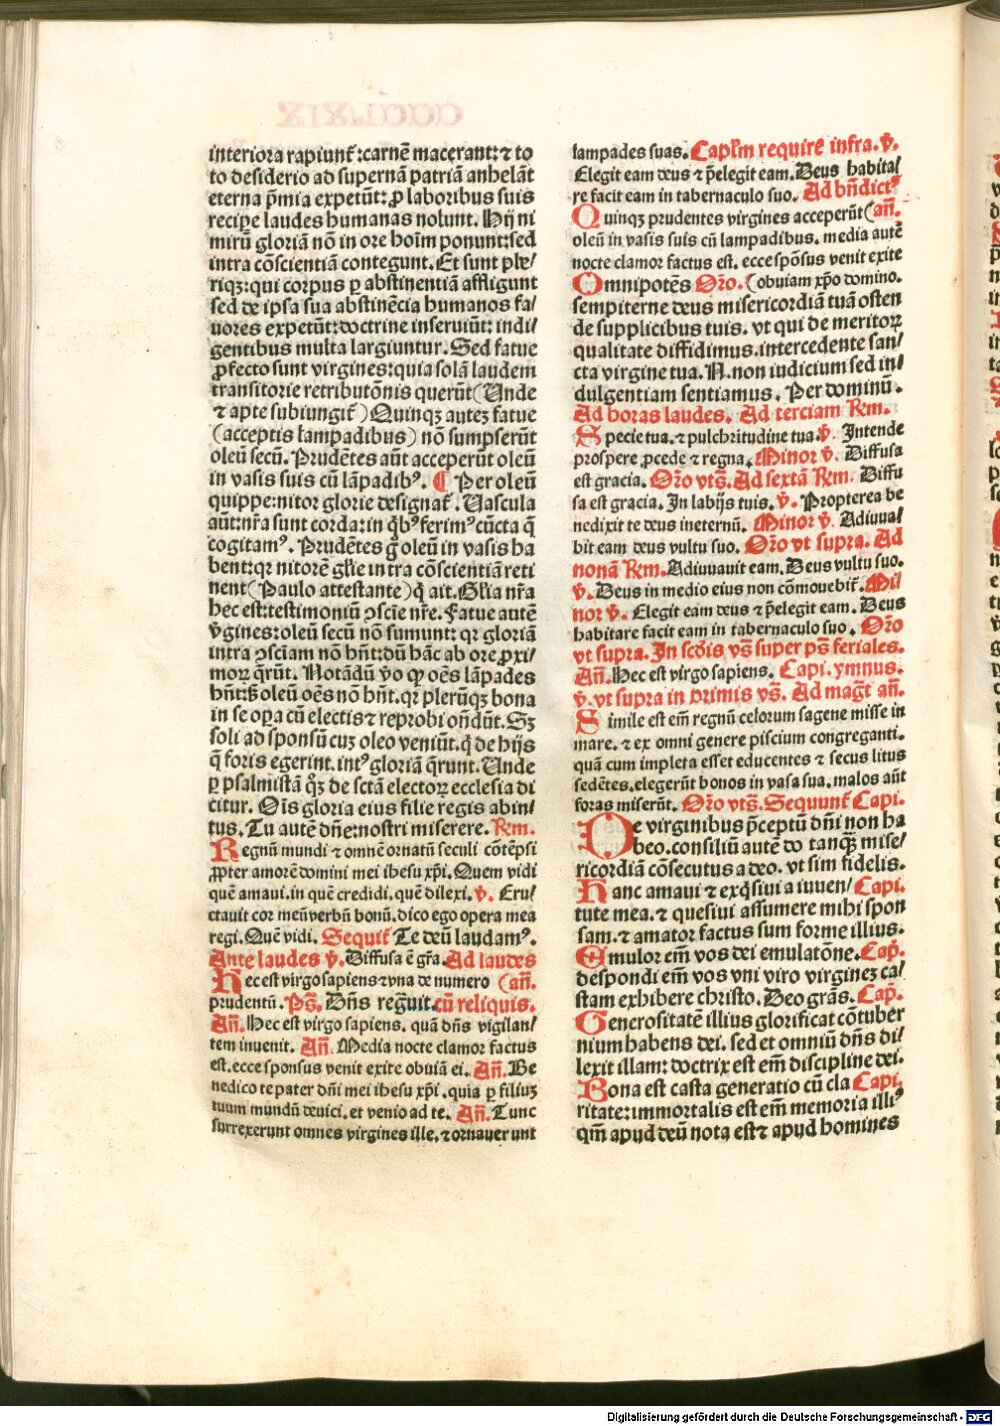 interiora rapiunt᷑: carnē macerant: ⁊ to
to desiderio ad supernā patriā anhelāt
eterna p̄mia expetūt: ꝓ laboribus suis
recipe laudes humanas nolunt. Hij ni
mirū gloriā nō in ore hoīm ponunt: sed
intra cōscientiā contegunt. Et sunt ple/
riqꝫ: qui corpus ꝑ abstinentiā affligunt
sed de ipsa sua abstinēcia humanos fa/
uores expetūt: doctrine inseruiūt: indi/
gentibus multa largiuntur. Sed fatue
ꝓfecto sunt virgines: quia solā laudem
transitorie retributōnis querūt (Unde
⁊ apte subiungit᷑) Quinqꝫ auteꝫ fatue
(acceptis lampadibus) nō sumpserūt
oleū secū. Prudētes aūt acceperūt oleū
in vasis suis cū lāpadibꝰ. ¶ Per oleū
quippe: nitor glorie designat᷑. Uascula
aūt: nr̄a sunt corda: in q̄bꝰ ferimꝰ cūcta q̄
cogitamꝰ. Prudētes g̊ oleū in vasis ha
bent: qꝛ nitorē gl̄ie intra cōscientiā reti
nent (Paulo attestante) q̄ ait. Gl̄ia nr̄a
hec est: testimoniū ꝯscīe nr̄e. Fatue autē
v̄gines: oleū secū nō sumunt: qꝛ gloriā
intra ꝯsciam nō hn̄t: dū hāc ab ore ꝓxi/
moꝝ q̄rūt. Notādū v̄o ꝙ oēs lāpades
hn̄t: sꝫ oleū oēs nō hn̄t. qꝛ plerūqꝫ bona
in se oꝑa cū electis ⁊ reprobi on̄dūt. Sꝫ
soli ad sponsū cuꝫ oleo veniūt. q̄ de hijs
q̄ foris egerint. intꝰ gloriā q̄runt. Unde
ꝑ psalmistā qͦꝫ de sctā electoꝝ ecclesia di
citur. Oīs gloria eius filie regis ab in/
tus. Tu autē dn̄e: nostri miserere. Rm̄.
Regnū mundi ⁊ omnē ornatū seculi cōtēpsi
ꝓpter amorē domini mei ihesu xp̄i. Quem vidi
quē amaui. in quē credidi. quē dilexi. v̄. Eru/
ctauit cor meū verbū bonū. dico ego opera mea
regi. Quē vidi. Sequit᷑ Te deū laudamꝰ.
Ante laudes v̄. Diffusa ē gr̄a. Ad laudes
Hec est virgo sapiens ⁊ vna de numero (an̄.
prudentū. Ps̄. Dn̄s reg̅uit. cū reliquis.
An̄. Hec est virgo sapiens. quā dn̄s vigilan/
tem inuenit. An̄. Media nocte clamor factus
est. ecce sponsus venit exite obuiā ei. An̄. Be
nedico te pater dn̄i mei ihesu xp̄i. quia ꝑ filiuꝫ
tuum mundū deuici. et venio ad te. An̄. Tunc
surrexerunt omnes virgines ille. ⁊ ornauerunt
lampades suas. Capl̄m require infra. v̄.
Elegit eam deus ⁊ p̄elegit eam. Deus habita/
re facit eam in tabernaculo suo. Ad bn̄dictꝰ
Quinqꝫ prudentes virgines acceperūt (an̄.
oleū in vasis suis cū lampadibus. media autē
nocte clamor factus est. ecce spōsus venit exite
Omnipotēs Or̄o. (obuiam xp̄o domino.
sempiterne deus misericordiā tuā osten
de supplicibus tuis. vt qui de meritoꝝ
qualitate diffidimus. intercedente san/
cta virgine tua. N. non iudicium sed in/
dulgentiam sentiamus. Per dominū.
Ad horas laudes. Ad terciam Rm̄.
Specie tua. ⁊ pulchritudine tua. v̄. Intende
prospere ꝓcede ⁊ regna. Minor v̄. Diffusa
est gracia. Or̄o vts̄. Ad sextā Rm̄. Diffu
sa est gracia. In labijs tuis. v̄. Propterea be
nedixit te deus in eternū. Minor v̄. Adiuua/
bit eam deus vultu suo. Or̄o vt supra. Ad
nonā Rm̄. Adiuuauit eam. Deus vultu suo.
v̄. Deus in medio eius non cōmouebit᷑. Mi/
nor v̄. Elegit eam deus ⁊ p̄elegit eam. Deus
habitare facit eam in tabernaculo suo. Or̄o
vt supra. In scd̄is vs̄ super ps̄ feriales.
An̄. Hec est virgo sapiens. Capi. ymnus.
v̄. vt supra in primis vs̄. Ad mag̅t an̄.
Simile est em̄ regnū celorum sagene misse in
mare. ⁊ ex omni genere piscium congreganti.
quā cum impleta esset educentes ⁊ secus litus
sedētes. elegerūt bonos in vasa sua. malos aūt
foras miserūt. Or̄o vts̄. Sequunt᷑ Capi.
De virginibus p̄ceptū dn̄i non ha
beo. consiliū autē do tanqꝫ mise/
ricordiā cōsecutus a deo. vt sim fidelis.
Hanc amaui ⁊ exq̄siui a iuuen/ Capi.
tute mea. ⁊ quesiui assumere mihi spon
sam. ⁊ amator factus sum forme illius.
Emulor em̄ vos dei emulatōne. Cap̄.
despondi em̄ vos vni viro virgineꝫ ca/
stam exhibere christo. Deo gr̄as. Cap̄.
Generositatē illius glorificat cōtuber
nium habens dei. sed et omniū dn̄s di/
lexit illam: doctrix est em̄ discipline dei.
Bona est casta generatio cū cla Capi.
ritate: immortalis est em̄ memoria illiꝰ
qm̄ apud deū nota est ⁊ apud homines
Digitalisierung gefördert durch die Deutsche Forschungsgemeinschaft - DFG